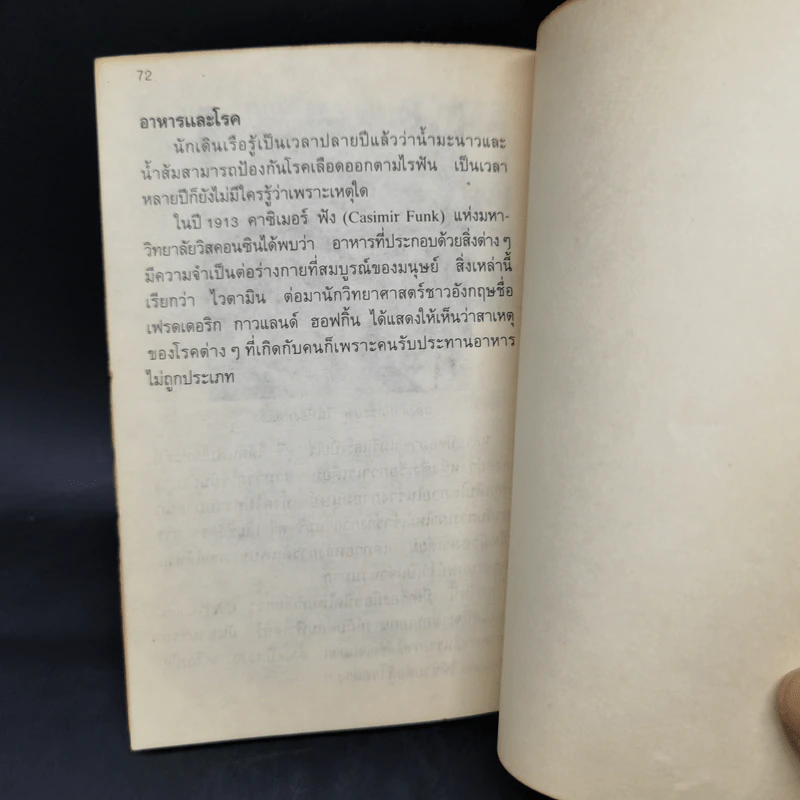 72
อาหารและโรค
นักเดินเรือรู้เป็นเวลาปลายปีแล้วว่าน้ำมะนาวและ
น้ำส้มสามารถป้องกันโรคเลือดออกตามไรฟัน เป็นเวลา
หลายปีก็ยังไม่มีใครรู้ว่าเพราะเหตุใด
ในปี 1913 คาซิเมอร์ ฟัง (Casimir Funk) แห่งมหา-
วิทยาลัยวิสคอนซินได้พบว่า อาหารที่ประกอบด้วยสิ่งต่าง ๆ
มีความจำเป็นต่อร่างกายที่สมบูรณ์ของมนุษย์ สิ่งเหล่านี้
เรียกว่า ไวตามิน ต่อมานักวิทยาศาสตร์ชาวอังกฤษชื่อ
เฟรดเดอริก กาวแลนด์ ฮอฟกิ้น ได้แสดงให้เห็นว่าสาเหตุ
ของโรคต่าง ๆ ที่เกิดกับคนก็เพราะคนรับประทานอาหาร
ไม่ถูกประเภท